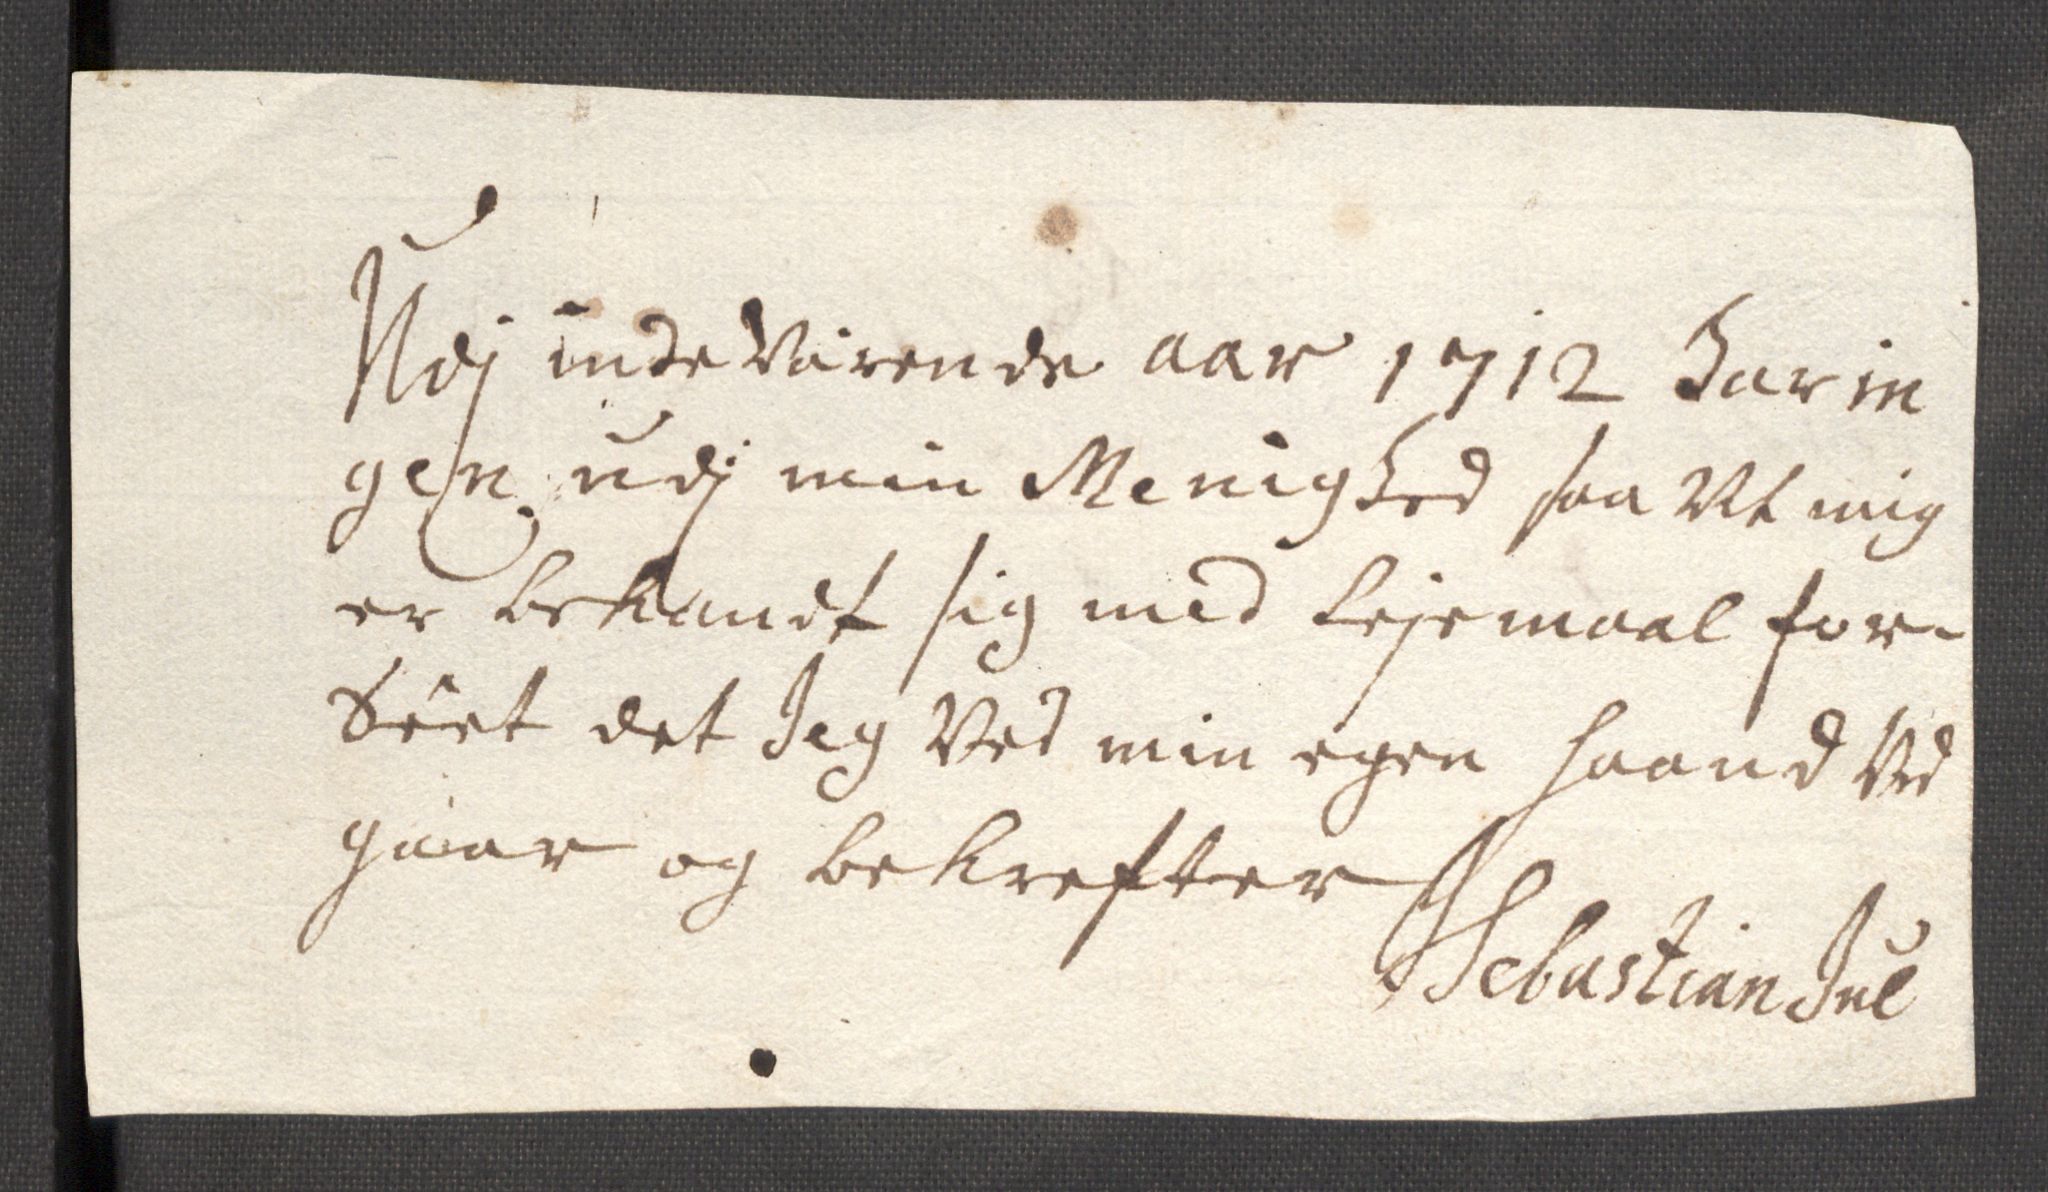 Udj inde Værende aar 1712 har in
gen udj min Menighed saa Vt mig
er bekandt sig med Lejemaal for-
Séet det Jeg Ved min egen haand Ved
gaar og bekrefter
Sebastian Jul